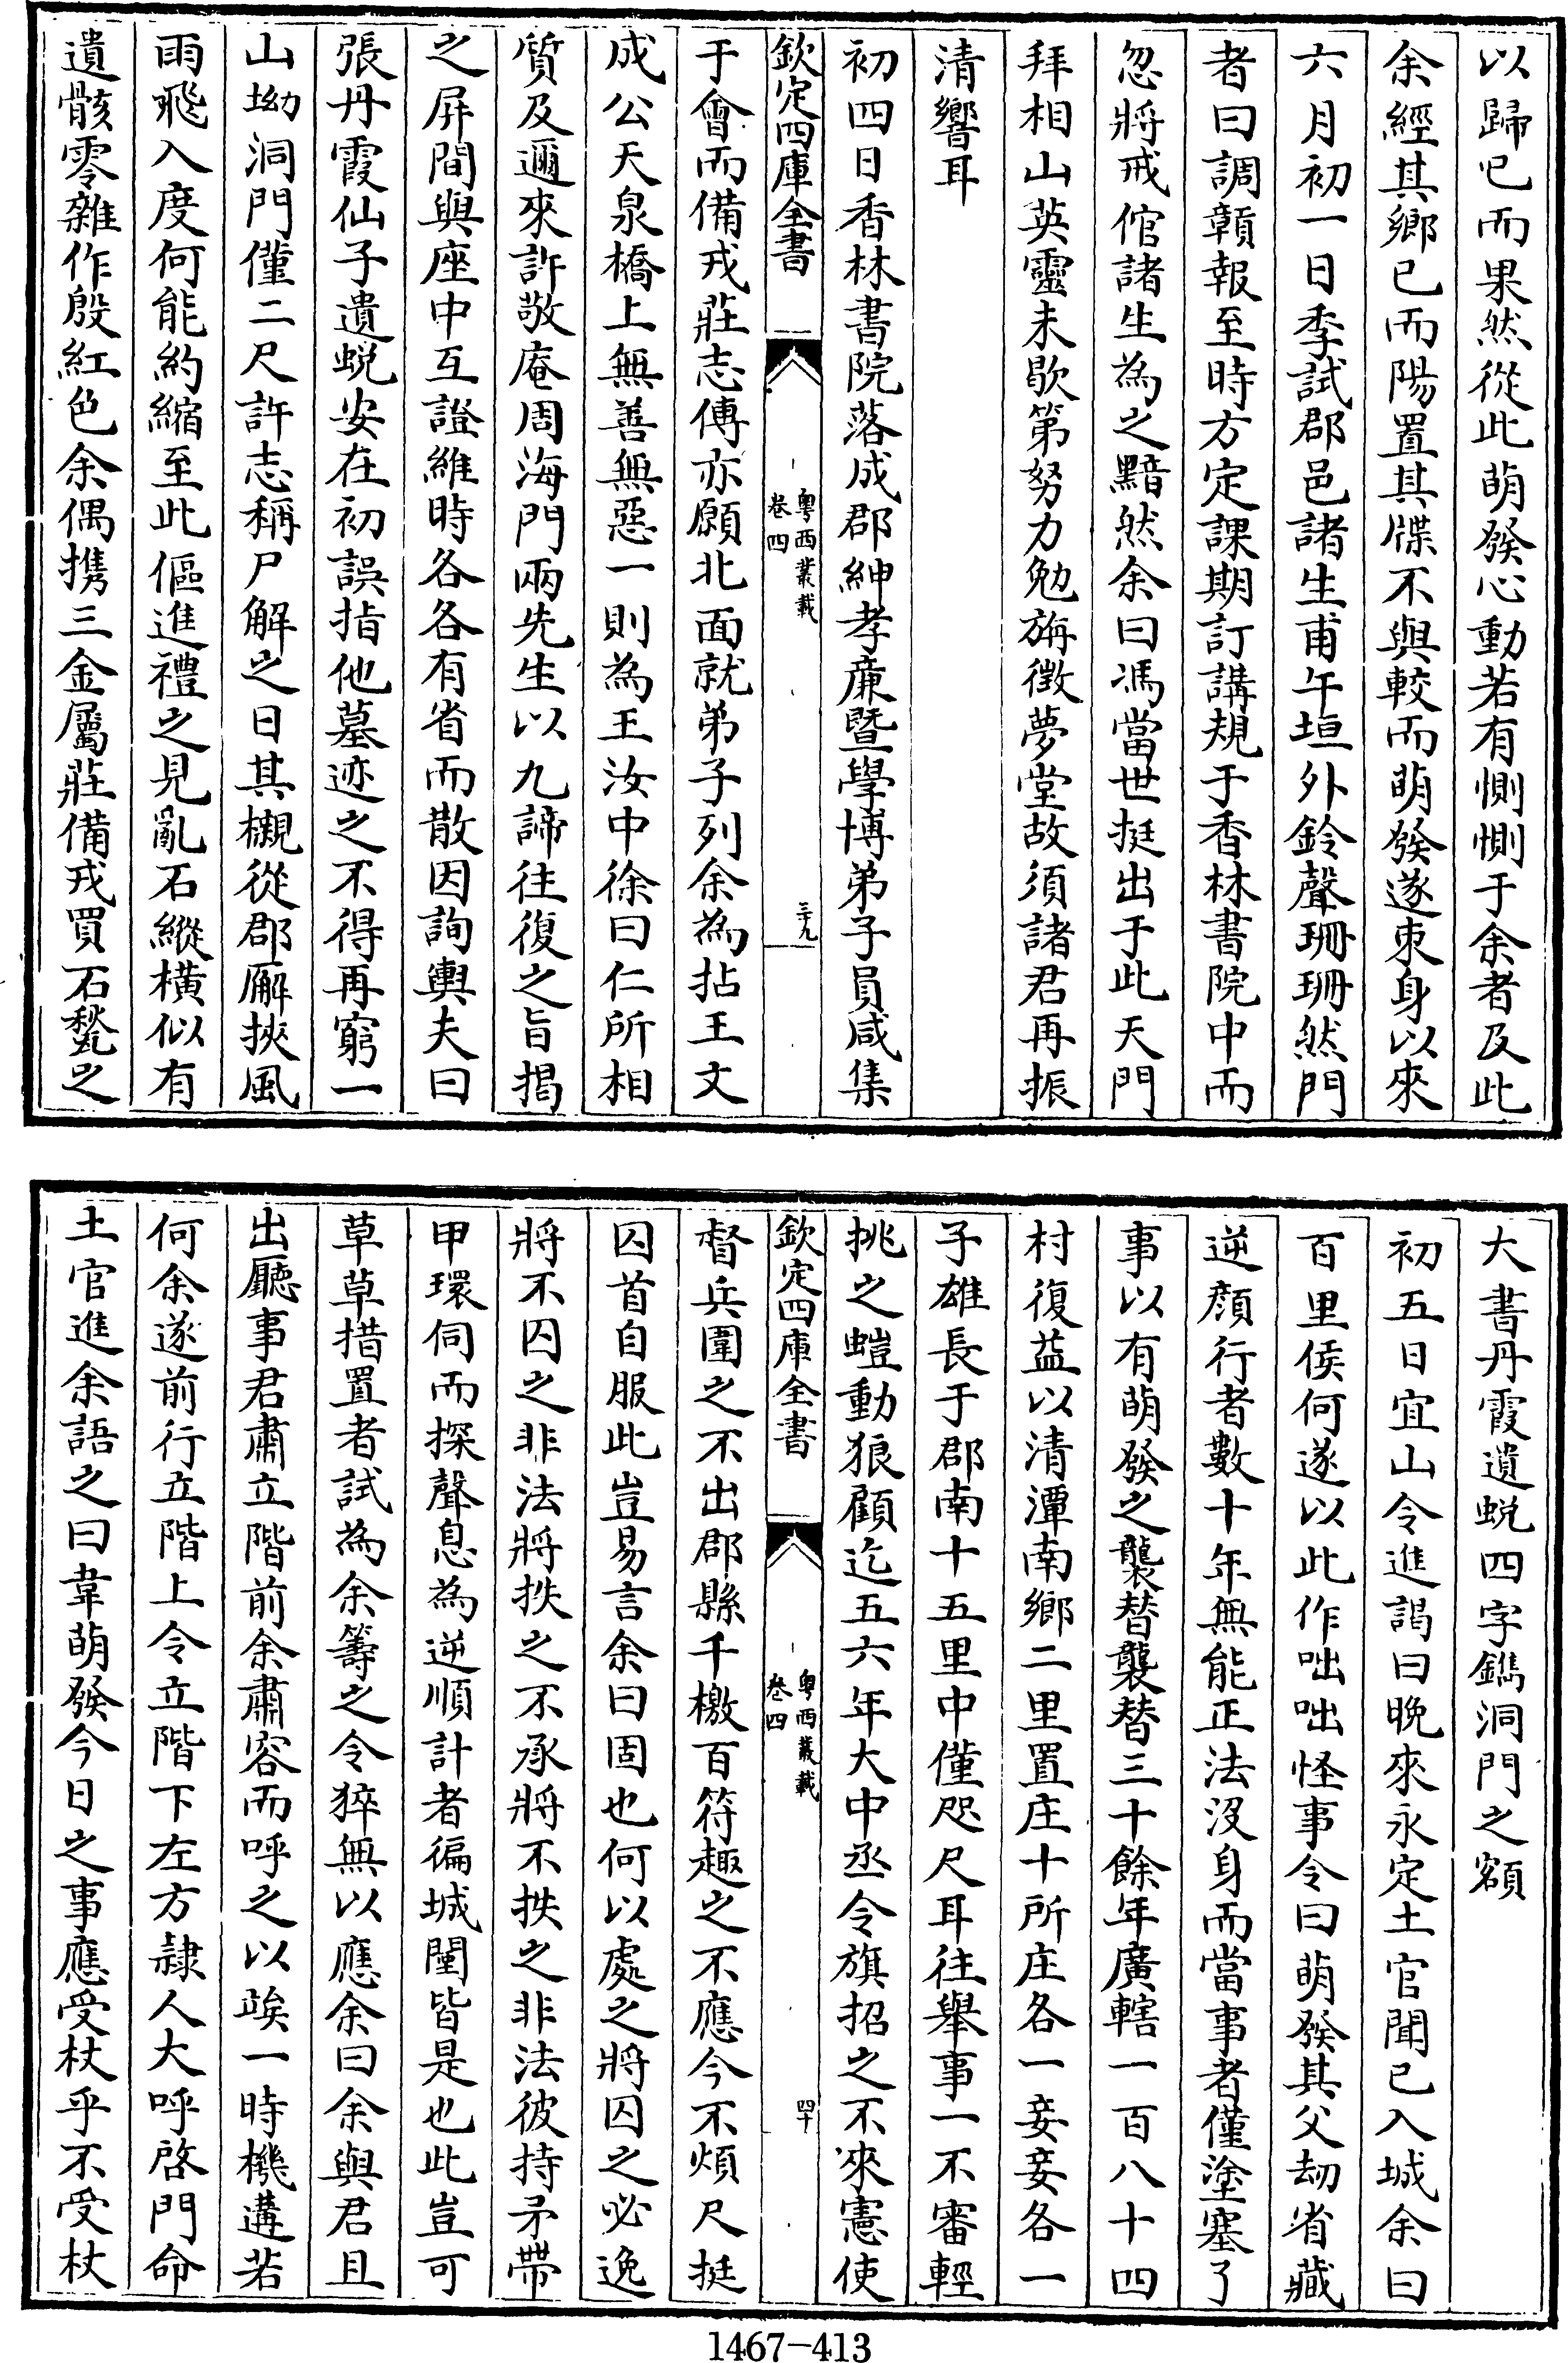 以歸已而果然從此萌發心動若有惻惻于余者及此
余經其鄉已而陽置其牒不與較而萌發遂束身以來
六月初一日季試郡邑諸生甫午垣外鈴聲珊珊然門
者曰調韻報至時方定課期訂講規于香林書院中而
忽將戒倌諸生為之黯然余曰馮當世挺出于此天門
拜相山英靈未歇第努力勉旃徵夢堂故須諸君再振
清響耳
初四日香林書院落成郡紳孝廉暨學博弟子員咸集
欽定四庫全書
粵西叢載
卷四
三十九
于會而備戎莊志傳亦願北面就弟子列余為拈王文
成公天泉橋上無善無惡一則為王汝中徐曰仁所相
質及邇來許敬庵周海門兩先生以九諦往復之旨揭
之屏間與座中互證維時各各有省而散因詢輿夫曰
張丹霞仙子遺蛻安在初誤指他墓迹之不得再窮一
山坳洞門僅二尺許志稱尸解之日其櫬從郡廨挾風
雨飛入度何能約縮至此傴進禮之見亂石縱橫似有
遺骸零雜作殷紅色余偶携三金屬莊備戎買石甃之
大書丹霞遺蛻四字鐫洞門之額
初五日宜山令進謁曰晚來永定土官聞已入城余曰
百里侯何遂以此作咄咄怪事令曰萌發其父刼省藏
逆顏行者數十年無能正法沒身而當事者僅塗塞了
事以有萌發之襲替襲替三十餘年廣轄一百八十四
村復益以清潭南鄉二里置庄十所庄各一妾妾各一
子雄長于郡南十五里中僅咫尺耳往舉事一不審輕
挑之螘動狼顧迄五六年大中丞令旗招之不來憲使
欽定四庫全書
粵西叢載
卷四
四十
督兵圍之不出郡縣千檄百符趣之不應今不煩尺挺
囚首自服此豈易言余曰固也何以處之將囚之必逸
將不囚之非法將抶之不承將不抶之非法彼持矛帶
甲環伺而探聲息為逆順計者徧城闉皆是也此豈可
草草措置者試為余籌之令猝無以應余曰余與君且
出廳事君肅立階前余肅容而呼之以竢一時機遘若
何余遂前行立階上令立階下左方隷人大呼啓門命
土官進余語之曰韋萌發今日之事應受杖乎不受杖
1467-413